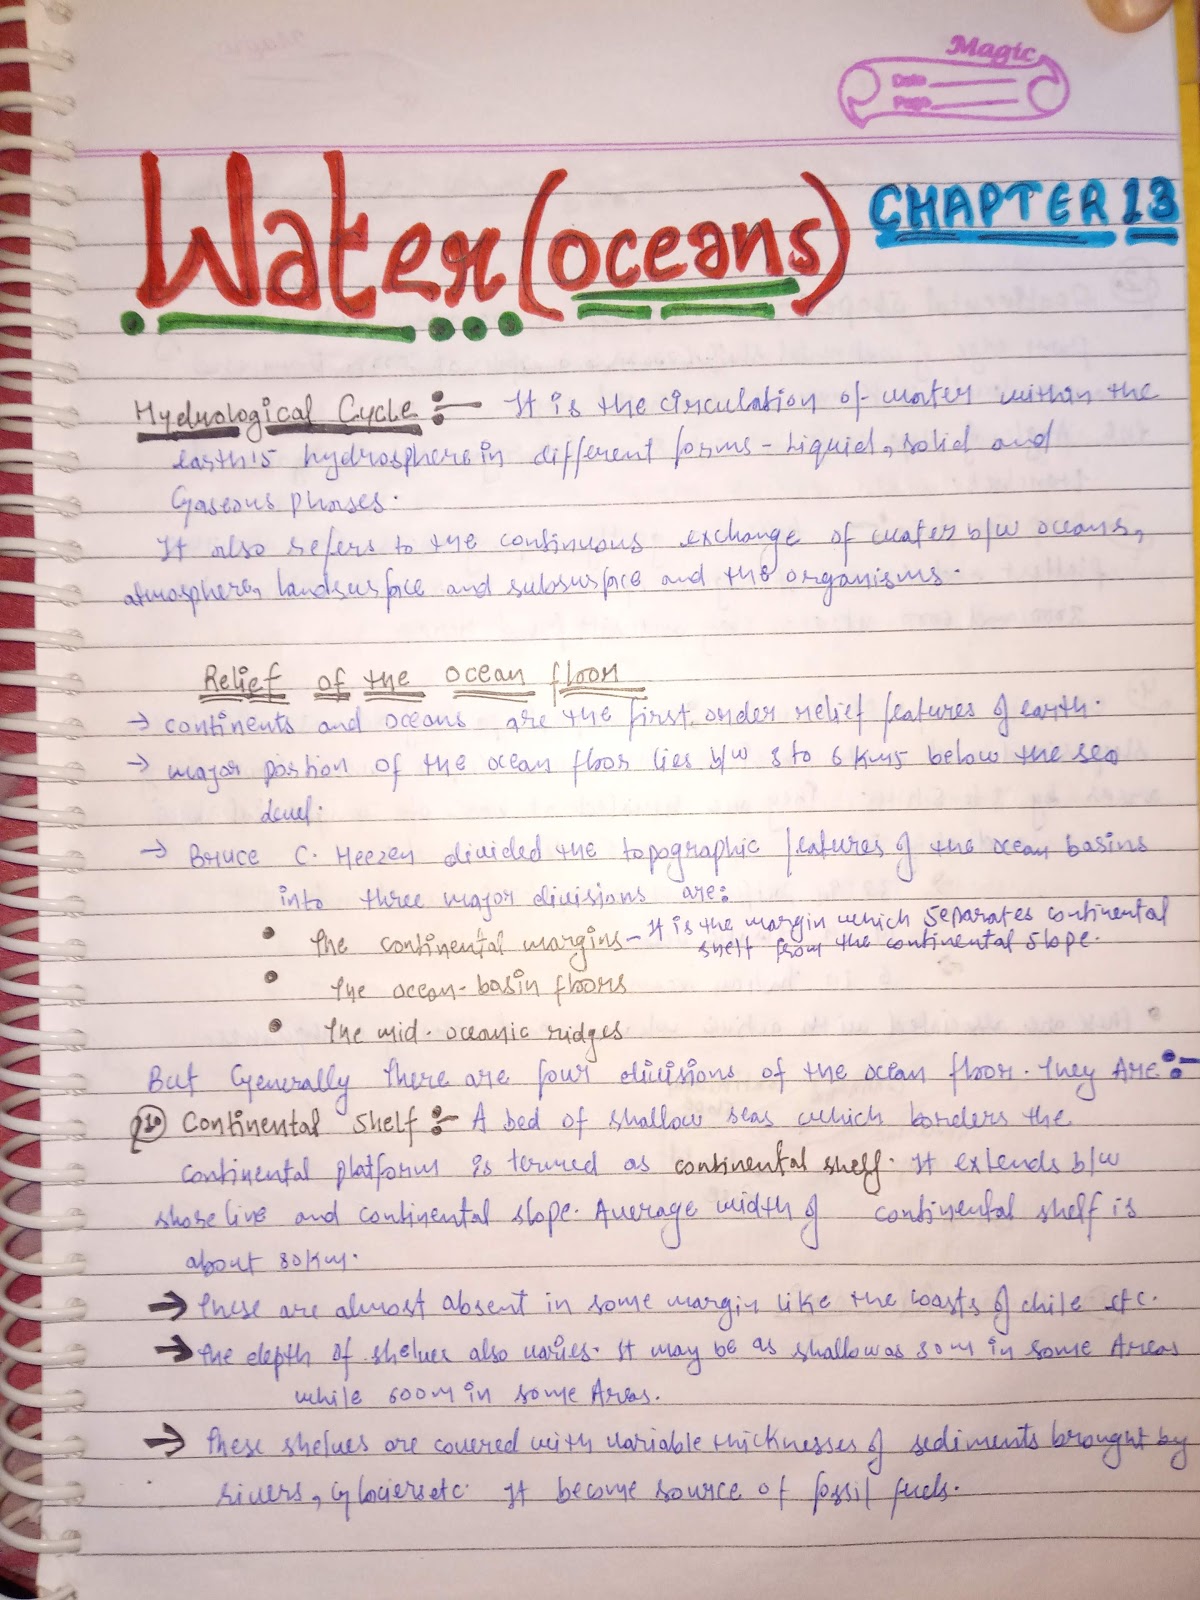 Magic
Date
Page
Water (oceans) CHAPTER 13
Hydrological Cycle :- It is the circulation of water within the
earth's hydrosphere in different forms - Liquid, solid and
Gaseous phases.
It also refers to the continuous exchange of water b/w oceans,
atmosphere, landsurface and subsurface and the organisms.
Relief of the ocean floor
→ continents and oceans are the first order relief features of earth.
→ major portion of the ocean floor lies b/w 3 to 6 Kms below the sea
level.
→ Bruce C. Heezen divided the topographic features of the ocean basins
into three major divisions are:
• The continental margins - It is the margin which separates continental
shelf from the continental slope.
• The ocean-basin floors
• The mid-oceanic ridges
But Generally there are four divisions of the ocean floor. They Are :-
1. Continental Shelf :- A bed of shallow seas which borders the
continental platform is termed as continental shelf. It extends b/w
shore live and continental slope. Average width of continental shelf is
about 80Km.
→ These are almost absent in some margin like the coasts of chile etc.
→ The depth of shelves also varies. It may be as shallow as 30m in some Areas
while 600m in some Areas.
→ These shelves are covered with variable thicknesses of sediments brought by
rivers, Glaciers etc. It become source of fossil fuels.